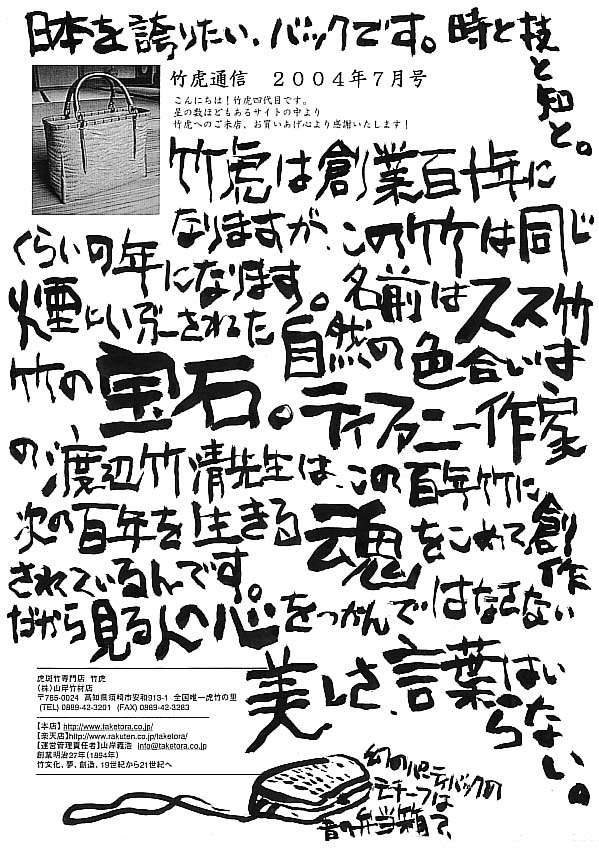 日本を誇りたい、バックです。時と技
と知と。
竹虎通信　２００４年７月号
こんにちは！竹虎四代目です。
星の数ほどもあるサイトの中より
竹虎へのご来店、お買いあげ心より感謝いたします！
竹虎は創業百十年に
なりますが、この竹は同じ
くらいの年になります。名前はスス竹
煙にいぶされた自然の色合いは
竹の宝石。ティファニー作家
の渡辺竹清先生は、この百年竹に
次の百年を生きる魂をこめて創作
されているんです。
だから見る人の心をつかんではなさない
美しさ、言葉はいらない。
虎斑竹専門店　竹虎
（株）山岸竹材店
〒785-0024　高知県須崎市安和913-1　全国唯一虎竹の里
(TEL) 0889-42-3201　(FAX) 0889-42-3283
【本店】http://www.taketora.co.jp/
【楽天店】http://www.rakuten.co.jp/taketora/
【運営管理責任者】山岸義浩　info@taketora.co.jp
創業明治27年（1894年）
竹文化、夢、創造、19世紀から21世紀へ
幻のパーティバックの
モチーフは
昔の弁当箱で、